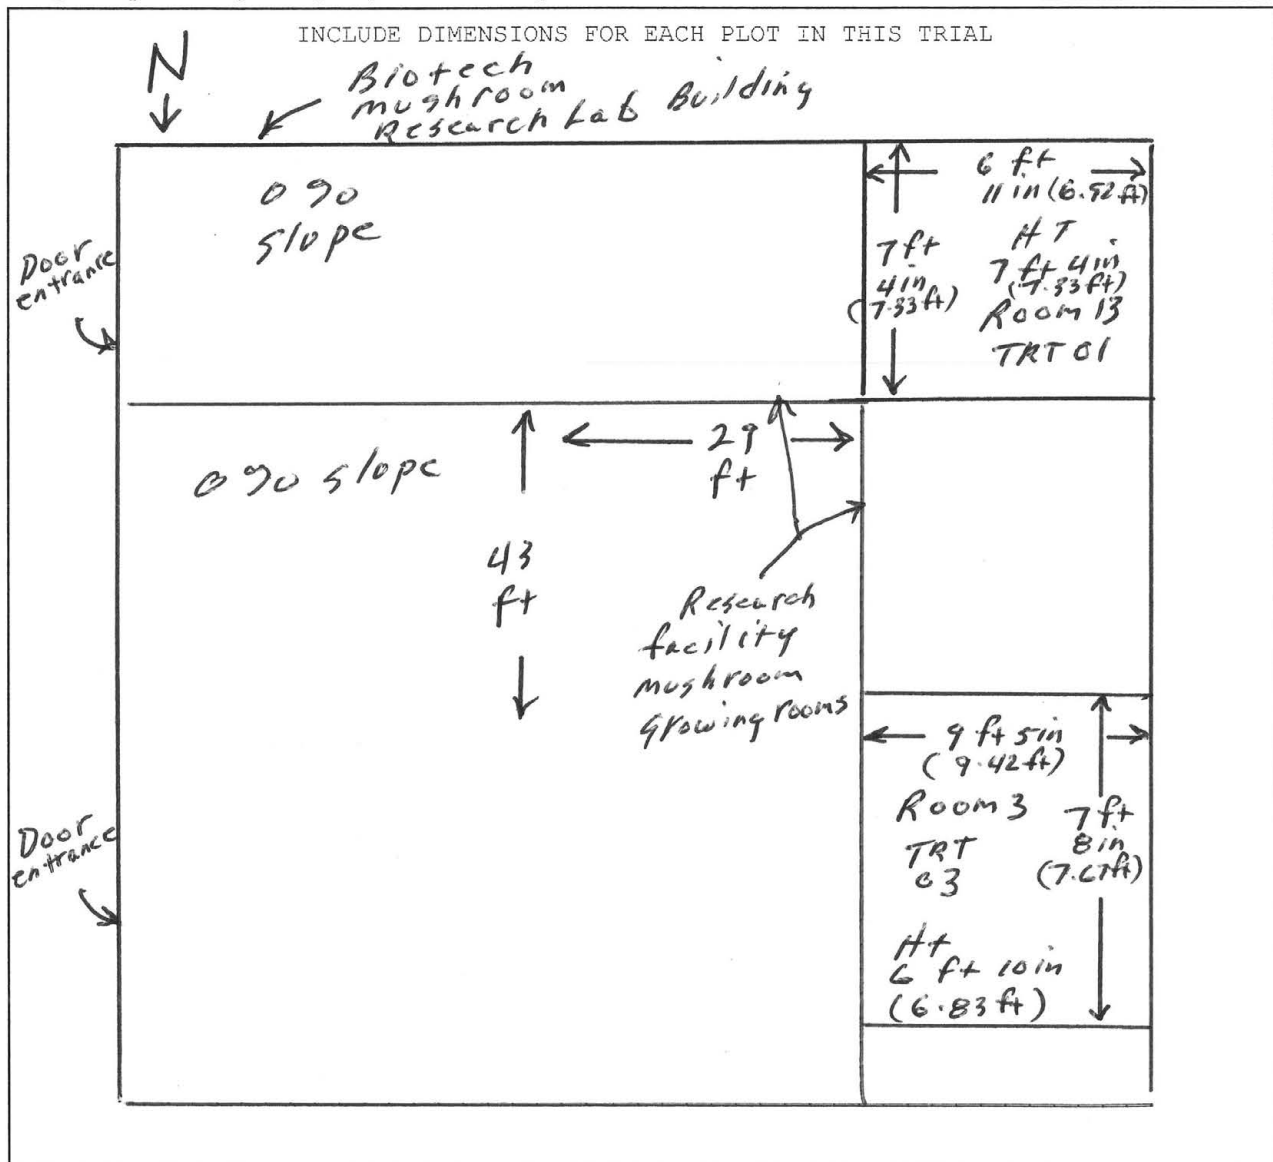 INCLUDE DIMENSIONS FOR EACH PLOT IN THIS TRIAL
N
Biotech
mushroom
Research Lab Building
0 %
slope
Door
entrance
6 ft
11 in (6.92 ft)
7 ft
4 in
(7.33 ft)
HT
7 ft 4 in
(7.33 ft)
Room 13
TRT 01
0 % slope
29
ft
43
ft
Research
facility
mushroom
Growing rooms
9 ft 5 in
(9.42 ft)
Room 3
TRT
03
7 ft
8 in
(7.67 ft)
Ht
6 ft 10 in
(6.83 ft)
Door
entrance